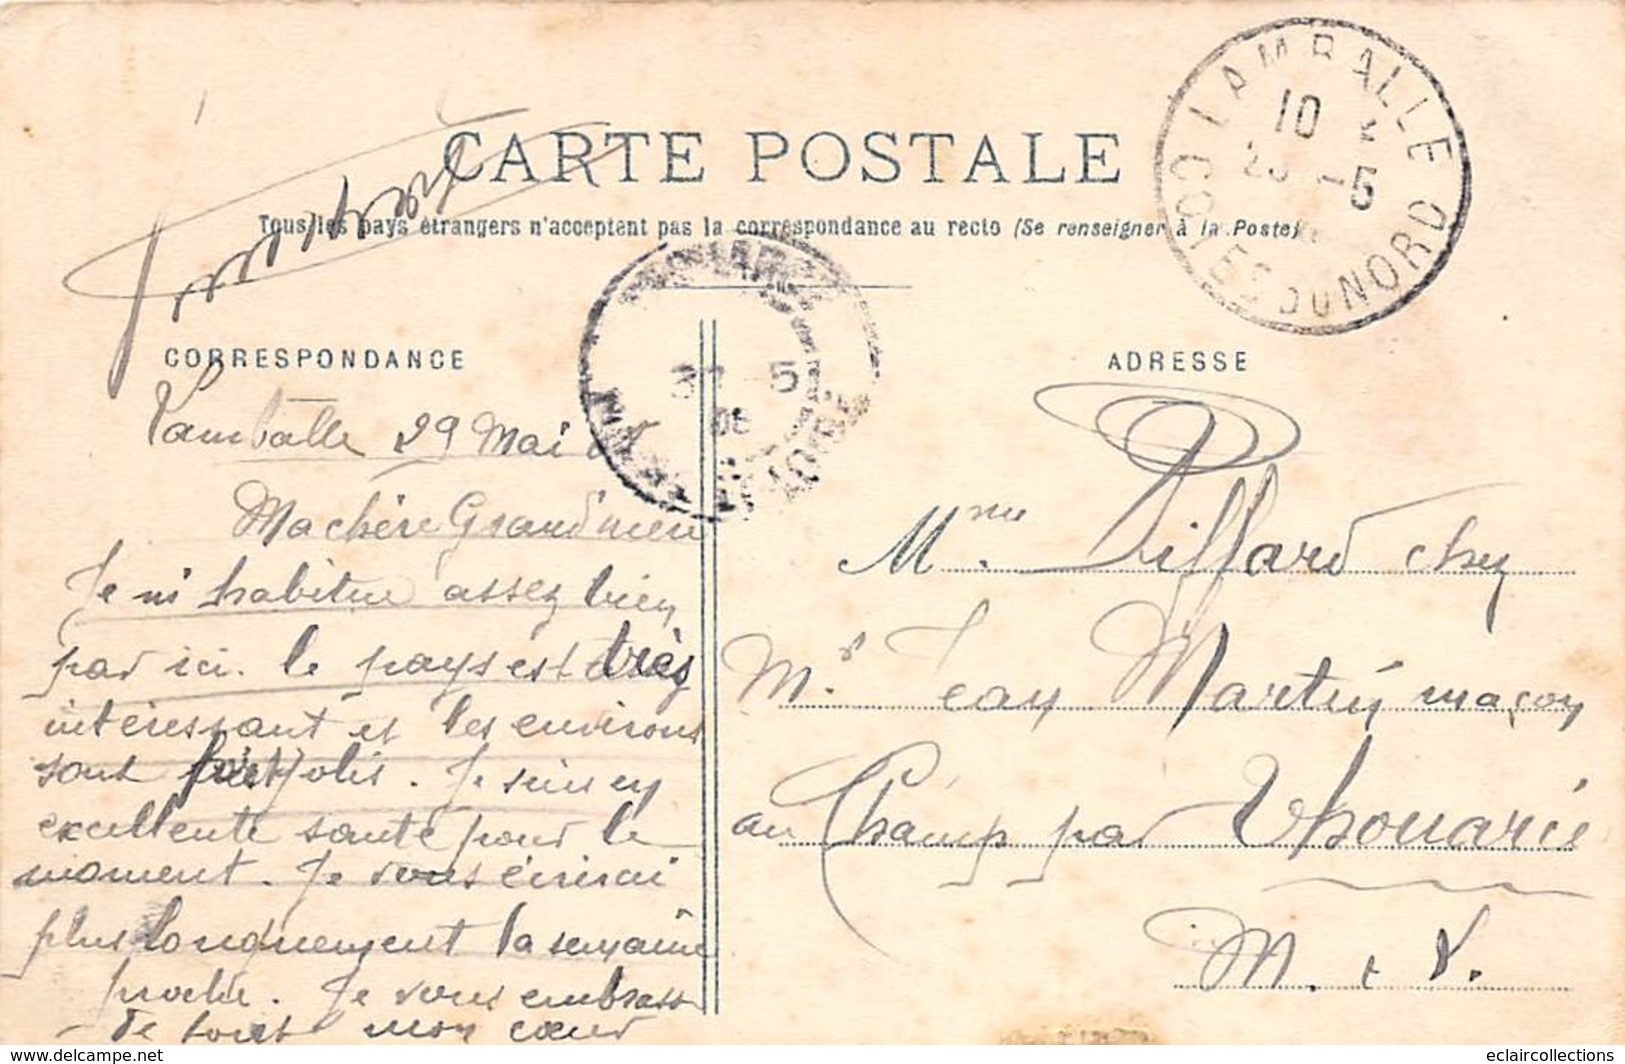 CARTE POSTALE
Tous les pays étrangers n'acceptent pas la correspondance au recto (Se renseigner à la Poste)
LAMBALLE
10
29 -5
COTES DU NORD
30 -5
08
CORRESPONDANCE
Lamballe 29 Mai
Ma chère Grand'mère
Je m'habitue assez bien
par ici. le pays est très
intéressant et les environs
sont jolis. Je suis en
excellente santé pour le
moment. Je vous écrirai
plus longuement la semaine
proche. Je vous embrasse
de tout mon cœur
ADRESSE
Mme. Piffard chez
Mr. Jean Martin maçon
au Champ par Thouarcé
M. & L.
eclaircollections